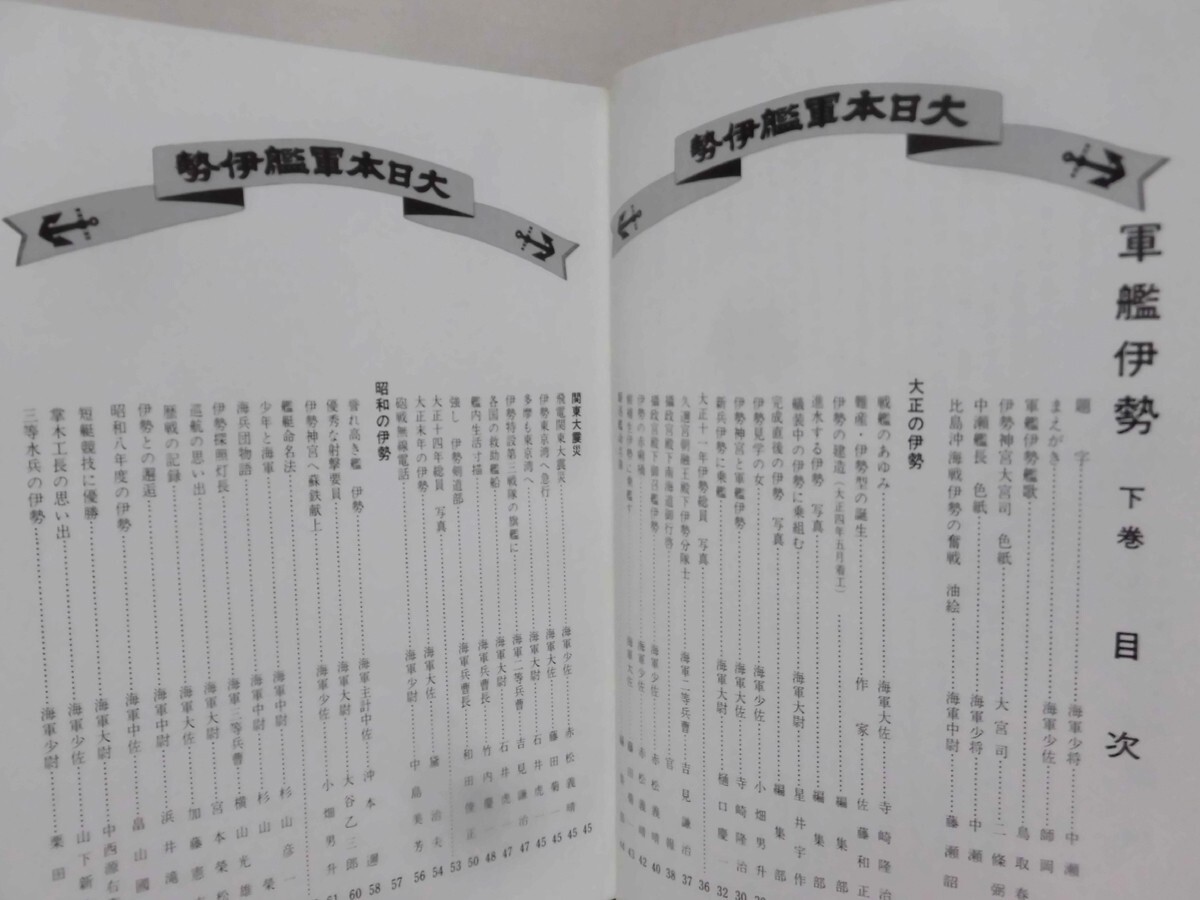 大日本軍艦伊勢
軍艦伊勢 下巻 目次
題字 海軍少将 中瀬
まえがき 海軍少佐 師岡
軍艦伊勢艦歌 鳥取春
伊勢神宮大宮司 色紙 大宮司 二條弼
中瀬艦長 色紙 海軍少将 中瀬
比島沖海戦伊勢の奮戦 油絵 海軍中尉 藤瀬韶
大正の伊勢
戦艦のあゆみ 海軍大佐 寺崎隆治
難産・伊勢型の誕生 作家 佐藤和正
伊勢の建造(大正四年五月着工) 編集部
進水する伊勢 写真 編集部
艤装中の伊勢に乗組む 海軍大尉 星井宇作
完成直後の伊勢 写真 編集部
伊勢見学の女 海軍少佐 小畑男升
伊勢神宮と軍艦伊勢 海軍大佐 寺崎隆治 30
新兵伊勢に乗艦 海軍大尉 樋口慶一 32
大正十一年伊勢総員 写真 36
久邇宮朝融王殿下伊勢分隊士 海軍二等兵曹 吉見謙治 37
摂政宮殿下南海道御行啓 38
摂政宮殿下御召艦伊勢 海軍少佐 赤松義晴 40
伊勢の赤腕 海軍少佐 赤松義晴 42
大日本軍艦伊勢
関東大震災
飛電関東大震災 海軍少佐 赤松義晴 45
伊勢東京湾へ急行 海軍大佐 藤田菊一 45
多摩も東京湾へ 海軍大尉 石井虎一 45
伊勢特設第三戦隊の旗艦に 海軍二等兵曹 吉見謙治 47
各国の救助艦船 海軍大尉 石井虎一 47
艦内生活寸描 海軍兵曹長 竹内慶一 48
強し 伊勢剣道部 海軍兵曹長 和田俊正 50
大正十四年総員 写真 53
大正末年の伊勢 海軍大佐 黛治夫 54
砲戦無線電話 海軍少尉 中島美芳 56
昭和の伊勢 57
誉れ高き艦 伊勢 海軍主計中佐 沖本邇 58
優秀な射撃要員 海軍大尉 大谷乙三郎 60
伊勢神宮へ蘇鉄献上 海軍少佐 小畑男升 61
艦艇命名法 海軍中尉 杉山彦一
少年と海軍 海軍中尉 杉山榮
海兵団物語 海軍一等兵曹 横山光雄
伊勢探照灯長 海軍大尉 宮本榮松
巡航の思い出 海軍大佐 加藤憲
歴戦の記録 海軍中尉 浜井滝
伊勢との邂逅 海軍中佐 畠山國
昭和八年度の伊勢 海軍大尉 中西源右
短艇競技に優勝 海軍少佐 山下新
掌木工長の思い出 海軍少尉 栗田
三等水兵の伊勢